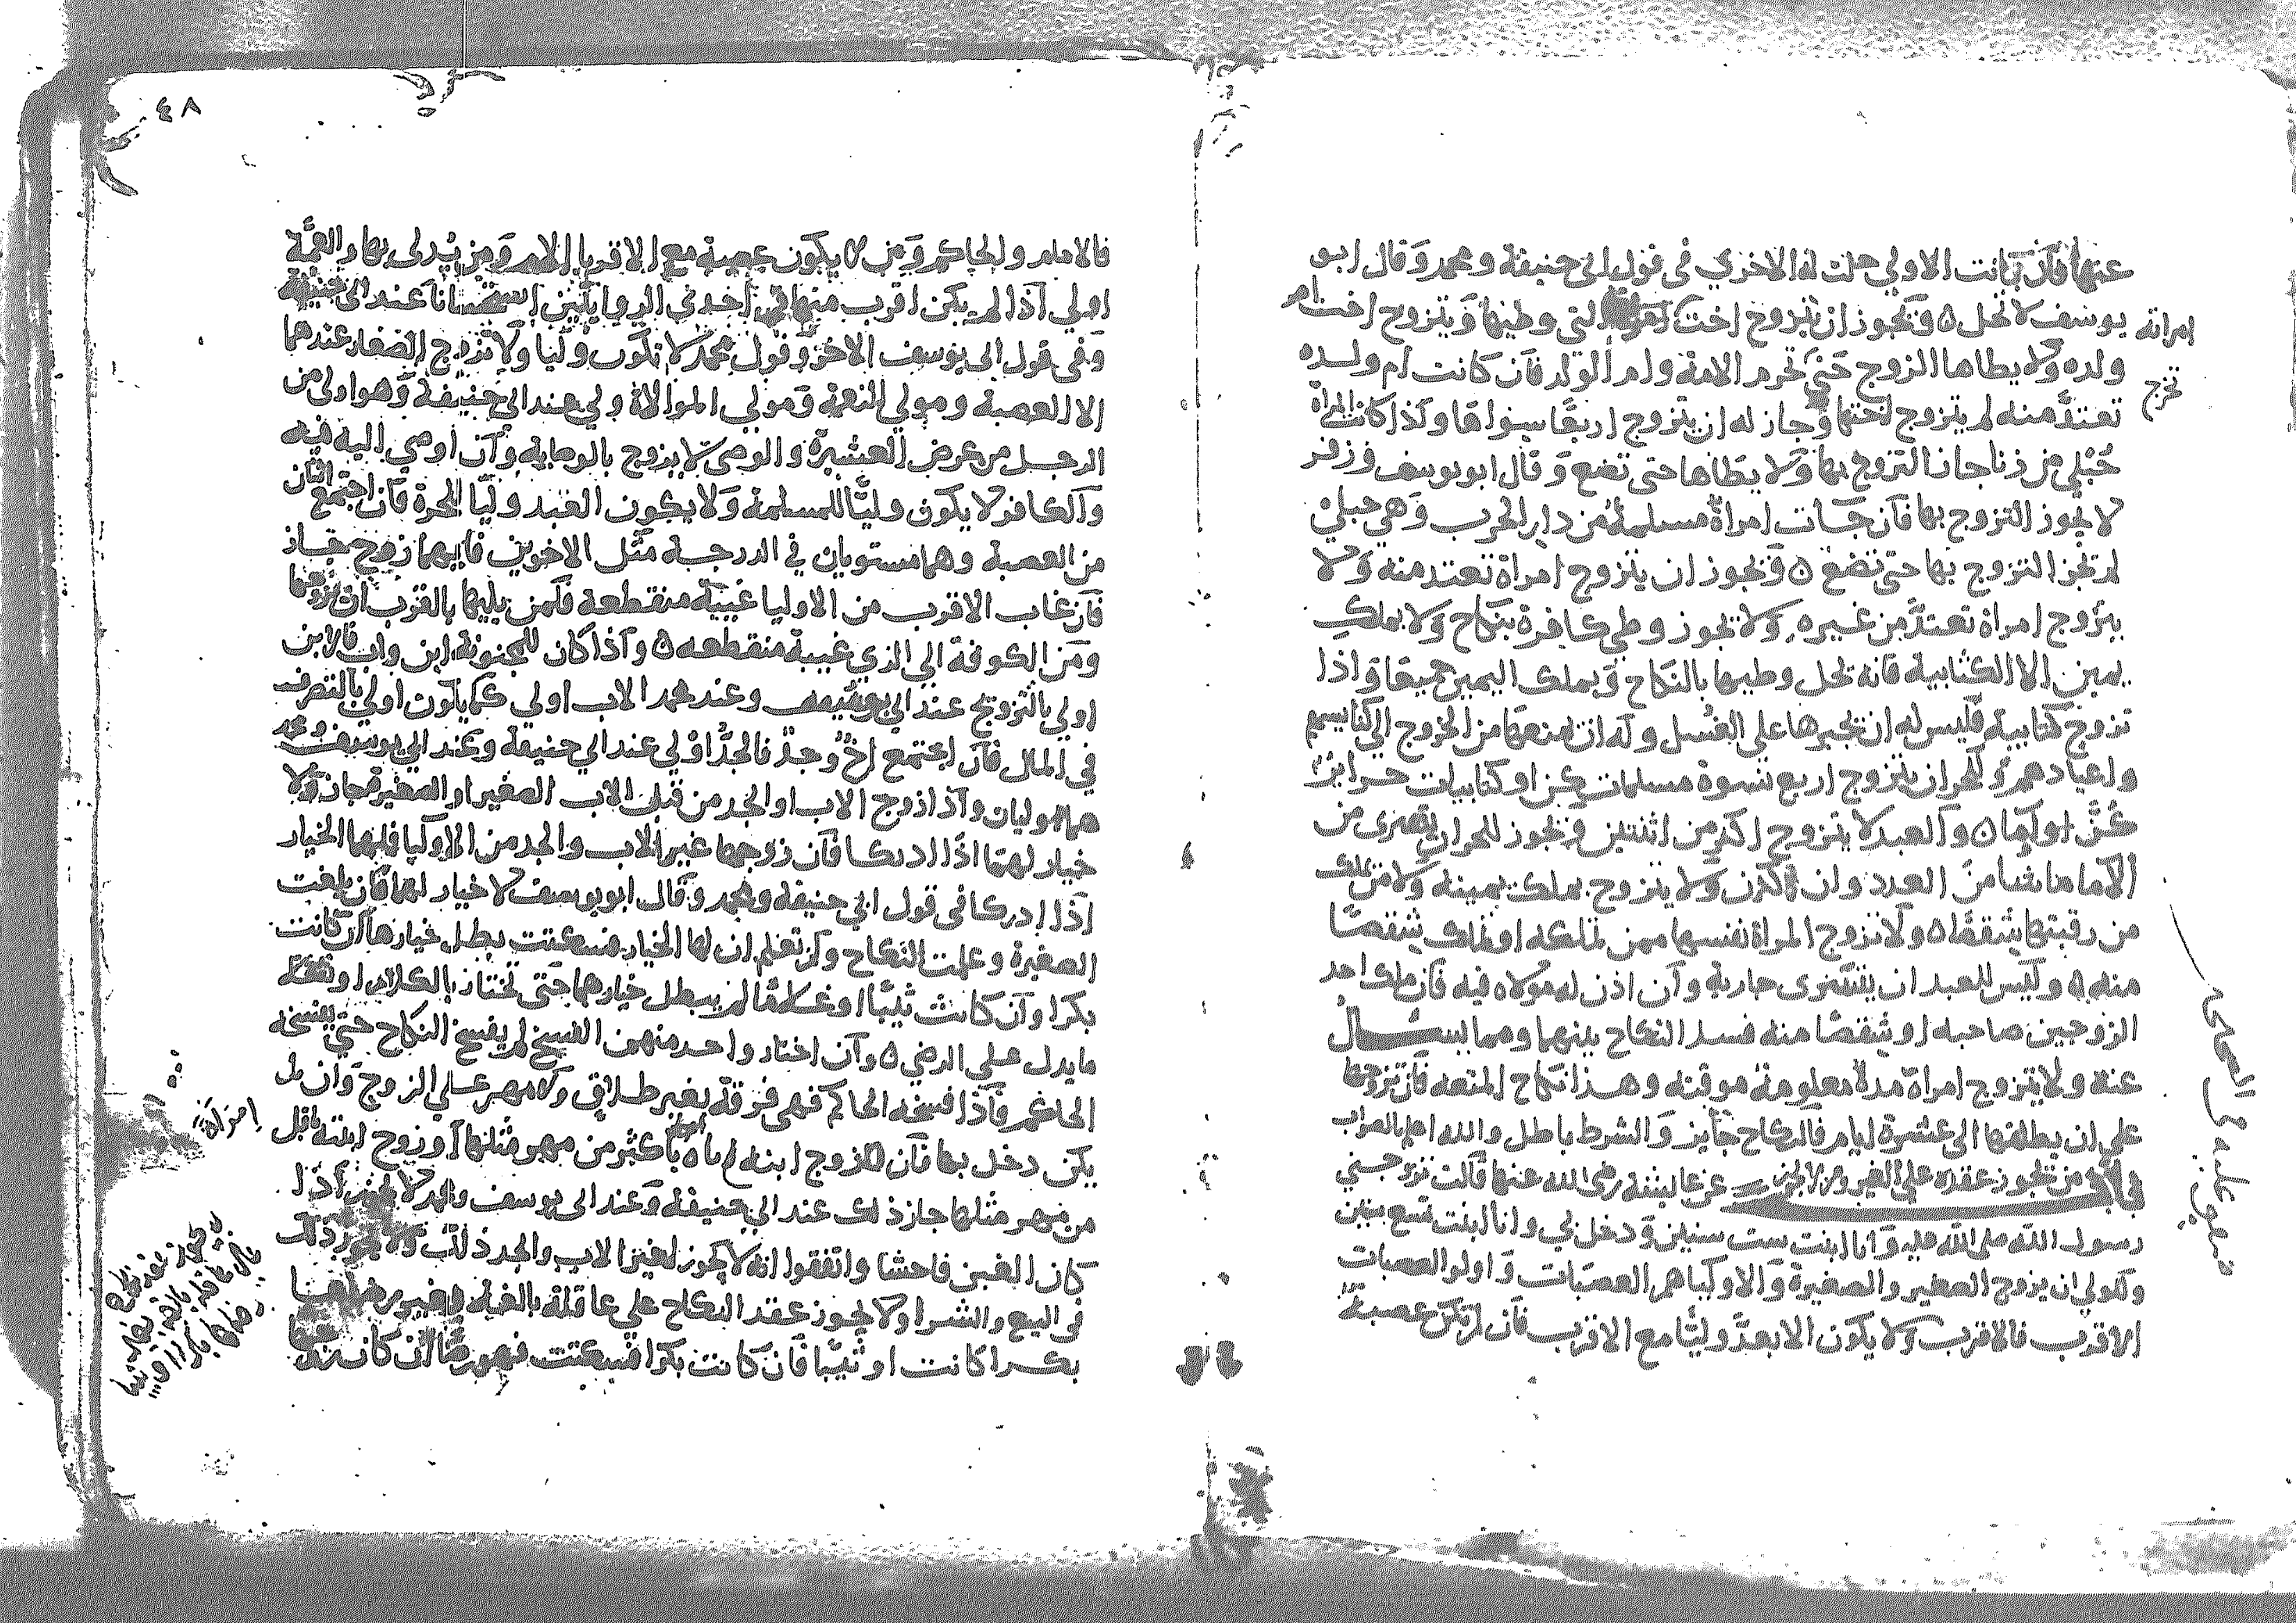 عنها فان كانت الاولي حلت له الاخري في قول ابي حنيفة ومحمد وقال ابو
يوسف لا تحل ٥ ويجوز ان يتزوج اخت التي وطيها ويتزوج اخت ام
امراته
ولده ولا يطاها الزوج حتي تحرم الامة وام الولد فان كانت ام ولده
تخرج
تعتد منه لم يتزوج اختها وجاز له ان يتزوج اربعا سواها وكذا كانت المراة
حبلي من زنا جاز التزوج بها ولا يطاها حتى تضع وقال ابو يوسف وزفر
لا يجوز التزوج بها فان جات امراة مسلمة من دار الحرب وهي حبلي
لم تجز التزوج بها حتى تضع ٥ ويجوز ان يتزوج امراة تعتد منه ولا
يتزوج امراة تعتد من غيره ولا يجوز وطي كافرة بنكاح ولا بملك
يمين الا الكتابية فانه تحل وطيها بالنكاح وبملك اليمين جميعا واذا
تزوج كتابية فليس له ان يجبرها على الغسل وله ان يمنعها من الخروج الى كنايسهم
واعيادهم وللحر ان يتزوج اربع نسوة مسلمات كن او كتابيات حراير
كن او اما ٥ والعبد لا يتزوج اكثر من اثنتين ويجوز للحر ان يتسرى من
الاما ما شا من العدد وان كثرن ولا يتزوج بملك يمينه ولا من يملك
من رقبتها شقصا ٥ ولا تزوج المراة نفسها ممن تملكه او تملك شقصا
منه ٥ وليس للعبد ان يتسرى جارية وان اذن له مولاه فيه فان ملك احد
الزوجين صاحبه او شقصا منه فسد النكاح بينهما ومما يسال
عنه ولا يتزوج امراة مدة معلومة موقته وهذا نكاح المتعه فان تزوجها
على ان يطلقها الى عشرة ايام فالنكاح جايز والشرط باطل والله اعلم بالصواب
من تجوز عقده على الغير ومن لا يجوز عن عايشة رضى الله عنها قالت تزوجني
رسول الله صلى الله عليه وانا ابنت ست سنين ودخل بي وانا ابنت تسع سنين
وللولي ان يزوج الصغير والصغيرة والاوليا هم العصبات واولو العصبات
الاقرب فالاقرب ولا يكون الابعد وليا مع الاقرب فان لم تكن عصبة
٤٨
فالامام والحاكم ومن لا يكون عصبة مع الاقربا الام ومن يدلى بها والعمة
اولى اذا لم يكن اقرب منها في احدى الروايتين استحسانا عند ابى حنيفة
وفى قول ابى يوسف الاخر وقول محمد لا تكون وليا ولا تزوج الصغار عندهما
الا العصبة ومولي النعمة ومولى الموالاة ولي عند ابي حنيفة وهو اولى من
الرجل من عرض العشيرة والوصى لا يزوج بالوصاية وان اوصي اليه فيه
والكافر لا يكون وليا للمسلمة ولا يكون العبد وليا للحرة فان اجتمع اثنان
من العصبة وهما مستويان في الدرجة مثل الاخوين فايهما زوج جاز
فان غاب الاقرب من الاوليا غيبة منقطعة فلمن يليها بالقرب ان يزوجها
ومن الكوفة الي الري غيبة منقطعه ٥ واذا كان للمجنونة ابن واب فالابن
اولي بالتزويج عند ابي يوسف وعند محمد الاب اولى كما يكون اولي بالتصرف
في المال فان اجتمع اخ وجد فالجد اولي عند ابي حنيفة وعند ابي يوسف ومحمد
هما وليان واذا زوج الاب او الجد من قبل الاب الصغير او الصغيرة جاز ولا
خيار لهما اذا ادركا فان زوجها غير الاب والجد من الاوليا فلهما الخيار
اذا ادركا فى قول ابي حنيفة ومحمد وقال ابو يوسف لا خيار لهما فان بلغت
الصغيرة وعلمت النكاح ولم تعلم ان لها الخيار فسكتت بطل خيارها ان كانت
بكرا وان كانت ثيبا او غلاما لم يبطل خيارهما حتى تختار بالكلام او تفعل
ما يدل على الرضى ٥ وان اختار واحد منهم الفسخ لم يفسخ النكاح حتى يفسخه
الحاكم فاذا فسخه الحاكم فهى فرقة بغير طلاق ولا مهر على الزوج وان لم
يكن دخل بها فان زوج ابنه باكثر من مهر مثلها او زوج ابنته باقل
امراة
من مهر مثلها جاز ذلك عند ابي حنيفة وعند ابى يوسف ومحمد لا يجوز اذا
كان الغبن فاحشا واتفقوا انه لا يجوز لغير الاب والجد ذلك ولا يجوز ذلك
فى البيع والشرا ولا يجوز عقد النكاح على عاقلة بالغة بغير رضاها
بكرا كانت او ثيبا فان كانت بكرا فسكتت فهو رضا